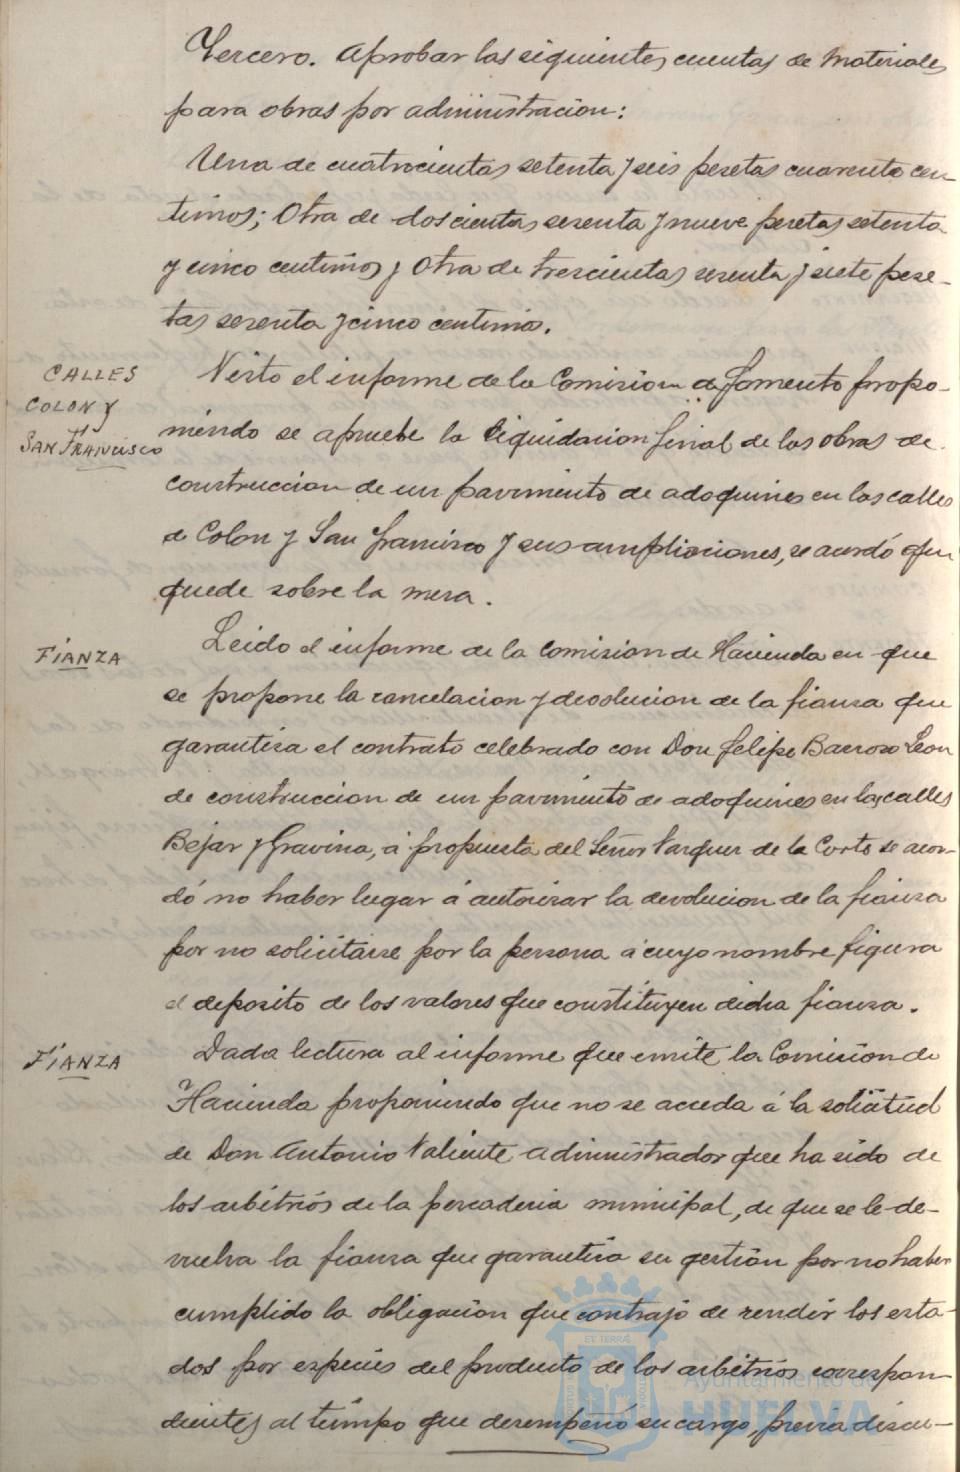 Tercero. Aprobar las siguientes cuentas de materiales
para obras por administracion:
Una de cuatrocientas setenta y seis pesetas cuarenta cen-
timos; Otra de doscientas sesenta y nueve pesetas setenta
y cinco centimos y Otra de trescientas sesenta y siete pese-
tas sesenta y cinco centimos.
CALLES
COLON Y
SAN FRANCISCO
Visto el informe de la Comision de Fomento propo-
niendo se apruebe la liquidacion final de las obras de
construccion de un pavimento de adoquines en las calles
de Colon y San Francisco y sus ampliaciones, se acordó que
quede sobre la mesa.
FIANZA
Leido el informe de la Comision de Hacienda en que
se propone la cancelacion y devolucion de la fianza que
garantiza el contrato celebrado con Don Felipe Barroso Leon
de construccion de un pavimento de adoquines en las calles
Bejar y Gravina, á propuesta del Señor Vazquez de la Corte se acor-
dó no haber lugar á autorizar la devolucion de la fianza
por no solicitarse por la persona á cuyo nombre figura
el deposito de los valores que constituyen dicha fianza.
FIANZA
Dada lectura al informe que emite la Comision de
Hacienda proponiendo que no se acceda á la solicitud
de Don Antonio Valiente administrador que ha sido de
los arbitrios de la pescaderia municipal, de que se le de-
vuelva la fianza que garantiza su gestion por no haber
cumplido la obligacion que contrajo de rendir los esta-
dos por especies del producto de los arbitrios correspon-
dientes al tiempo que desempeñó su cargo, previa discu-
ET TERRÆ
Ayuntamiento de
HUELVA